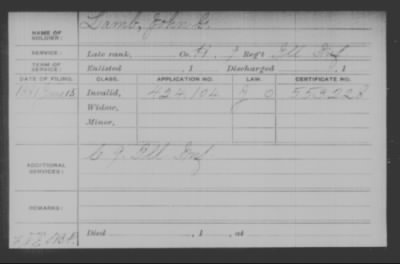 Lamb, John
NAME OF SOLDIER:
SERVICE: Late rank, Co. H, 9 Reg't Ill Inf
TERM OF SERVICE: Enlisted , 1 Discharged , 1
DATE OF FILING. CLASS. APPLICATION NO. LAW. CERTIFICATE NO.
Invalid, 424104 J O 553223
Widow,
Minor,
C 9 Ill Inf
ADDITIONAL SERVICES:
REMARKS:
Died , 1 , at